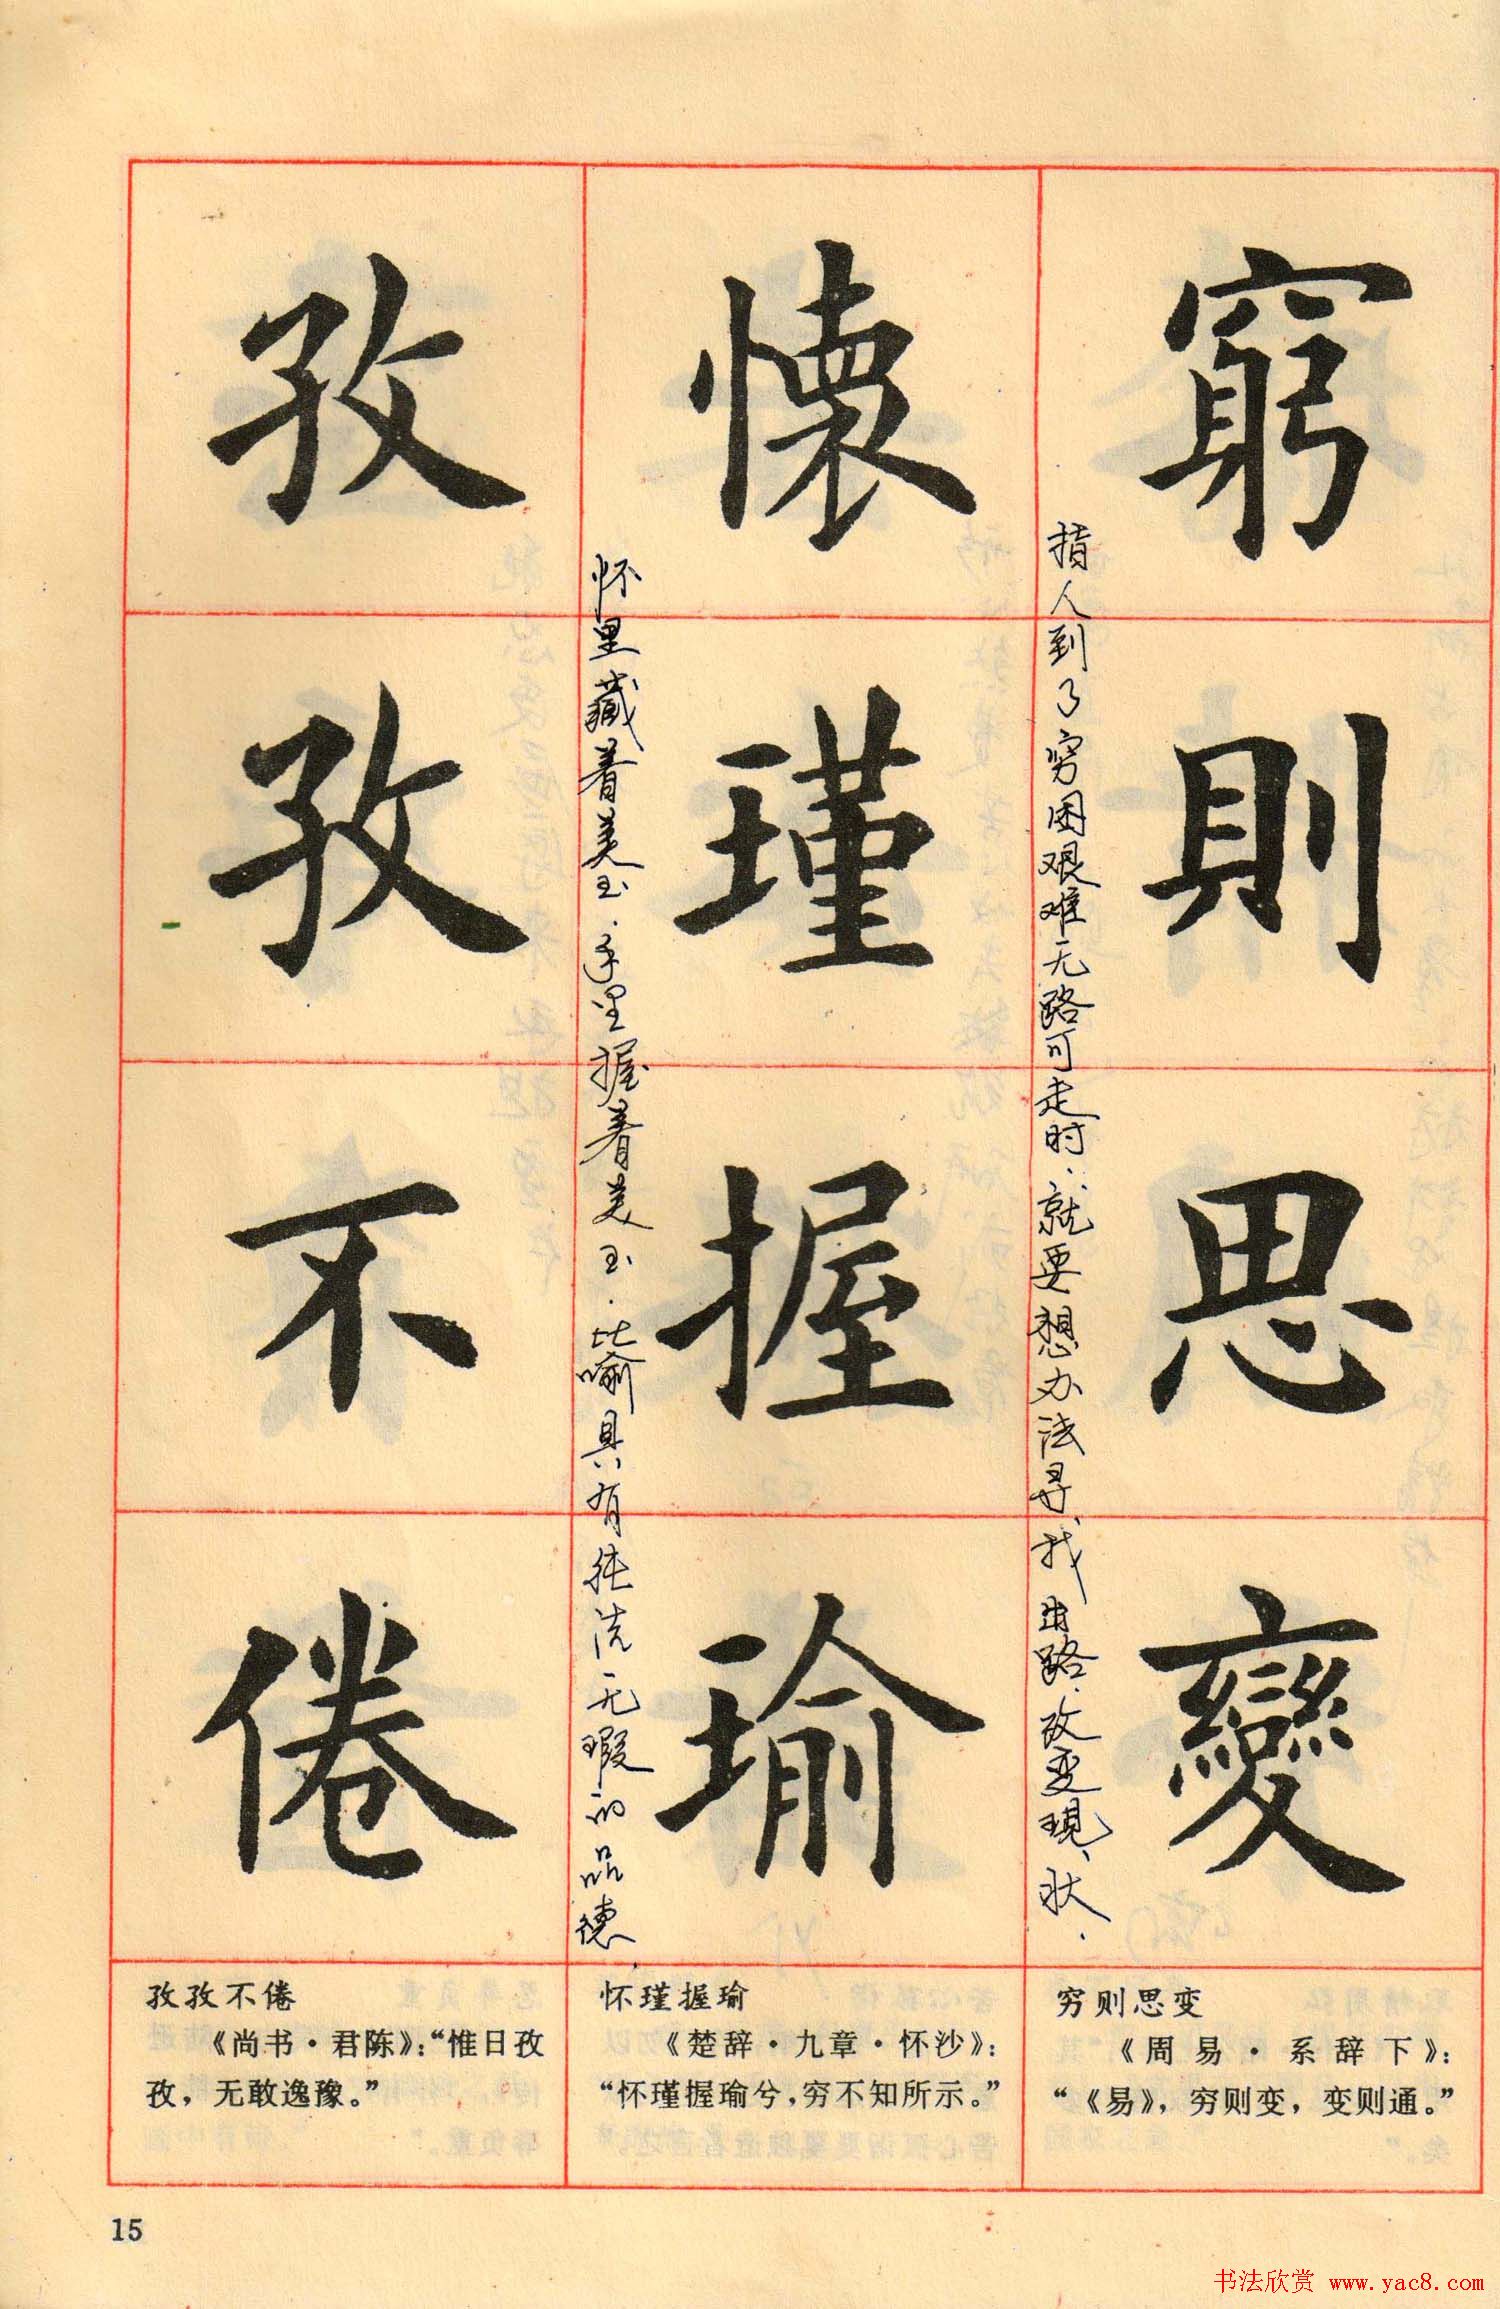 窮則思變
指人到了穷困艰难无路可走时.就要想办法寻找出路.改变现状.
懷瑾握瑜
怀里藏着美玉.手里握着美玉.比喻具有纯洁无瑕的品德
孜孜不倦
穷则思变
《周易·系辞下》：
“《易》，穷则变，变则通。”
怀瑾握瑜
《楚辞·九章·怀沙》：
“怀瑾握瑜兮，穷不知所示。”
孜孜不倦
《尚书·君陈》：“惟日孜
孜，无敢逸豫。”
15
书法欣赏 www.yac8.com